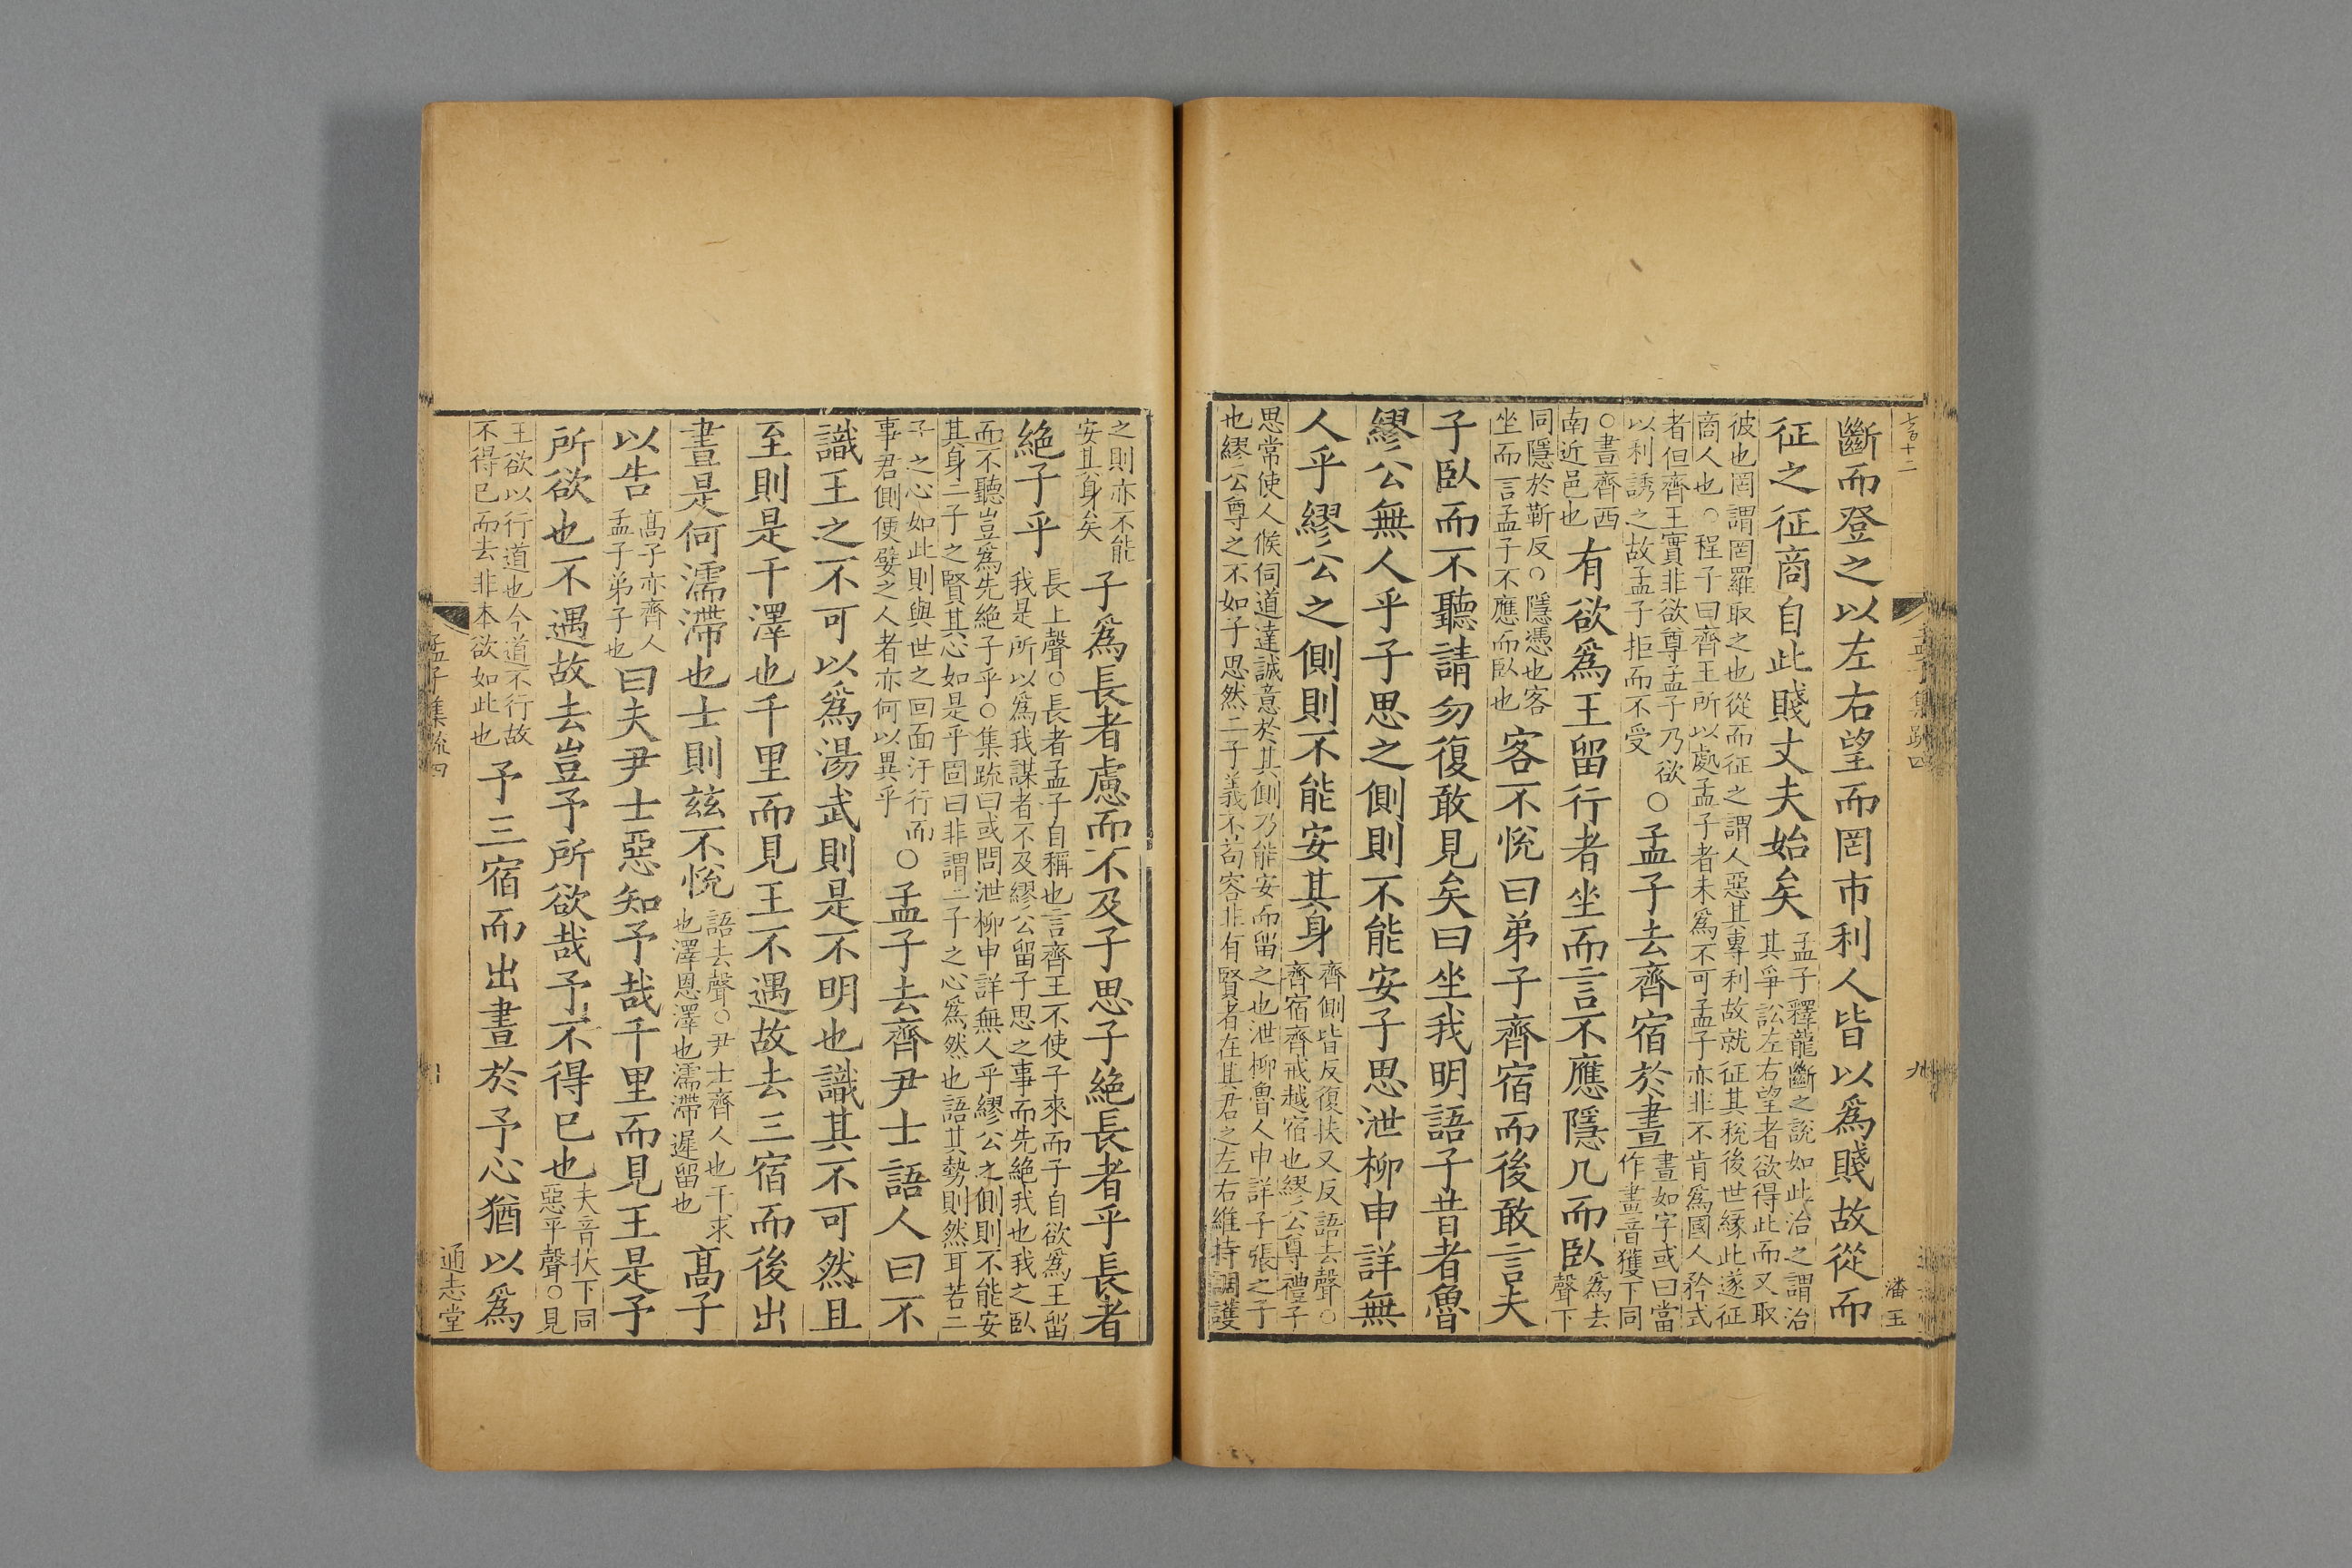 七百十二
孟子集疏四
九
潘玉
斷而登之以左右望而罔市利人皆以爲賤故從而
征之征商自此賤丈夫始矣
孟子釋龍斷之說如此治之謂治
其爭訟左右望者欲得此而又取
彼也罔謂罔羅取之也從而征之謂人惡其專利故就征其稅後世緣此遂征
商人也○程子曰齊王所以處孟子者未爲不可孟子亦非不肯爲國人矜式
者但齊王實非欲尊孟子乃欲
以利誘之故孟子拒而不受
○孟子去齊宿於晝
晝如字或曰當
作畫音獲下同
○晝齊西
南近邑也
有欲爲王留行者坐而言不應隱几而臥
爲去
聲下
同隱於靳反○隱憑也客
坐而言孟子不應而臥也
客不悅曰弟子齊宿而後敢言夫
子臥而不聽請勿復敢見矣曰坐我明語子昔者魯
繆公無人乎子思之側則不能安子思泄柳申詳無
人乎繆公之側則不能安其身
齊側皆反復扶又反語去聲○
齊宿齊戒越宿也繆公尊禮子
思常使人候伺道達誠意於其側乃能安而留之也泄柳魯人申詳子張之子
也繆公尊之不如子思然二子義不苟容非有賢者在其君之左右維持調護
之則亦不能
安其身矣
子爲長者慮而不及子思子絶長者乎長者
絶子乎
長上聲○長者孟子自稱也言齊王不使子來而子自欲爲王留
我是所以爲我謀者不及繆公留子思之事而先絶我也我之臥
而不聽豈爲先絶子乎○集疏曰或問泄柳申詳無人乎繆公之側則不能安
其身二子之賢其心如是乎固曰非謂二子之心爲然也語其勢則然耳若二
子之心如此則與世之回面汙行而
事君側便嬖之人者亦何以異乎
○孟子去齊尹士語人曰不
識王之不可以爲湯武則是不明也識其不可然且
至則是干澤也千里而見王不遇故去三宿而後出
晝是何濡滯也士則兹不悅
語去聲○尹士齊人也干求
也澤恩澤也濡滯遲留也
高子
以告
高子亦齊人
孟子弟子也
曰夫尹士惡知予哉千里而見王是予
所欲也不遇故去豈予所欲哉予不得已也
夫音扶下同
惡平聲○見
王欲以行道也今道不行故
不得已而去非本欲如此也
予三宿而出晝於予心猶以爲
孟子集疏四
通志堂